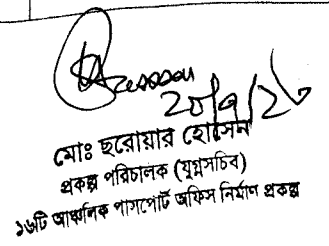 ২০/৭/২৬
মোঃ ছরোয়ার হোসেন
প্রকল্প পরিচালক (যুগ্মসচিব)
১৬টি আঞ্চলিক পাসপোর্ট অফিস নির্মাণ প্রকল্প